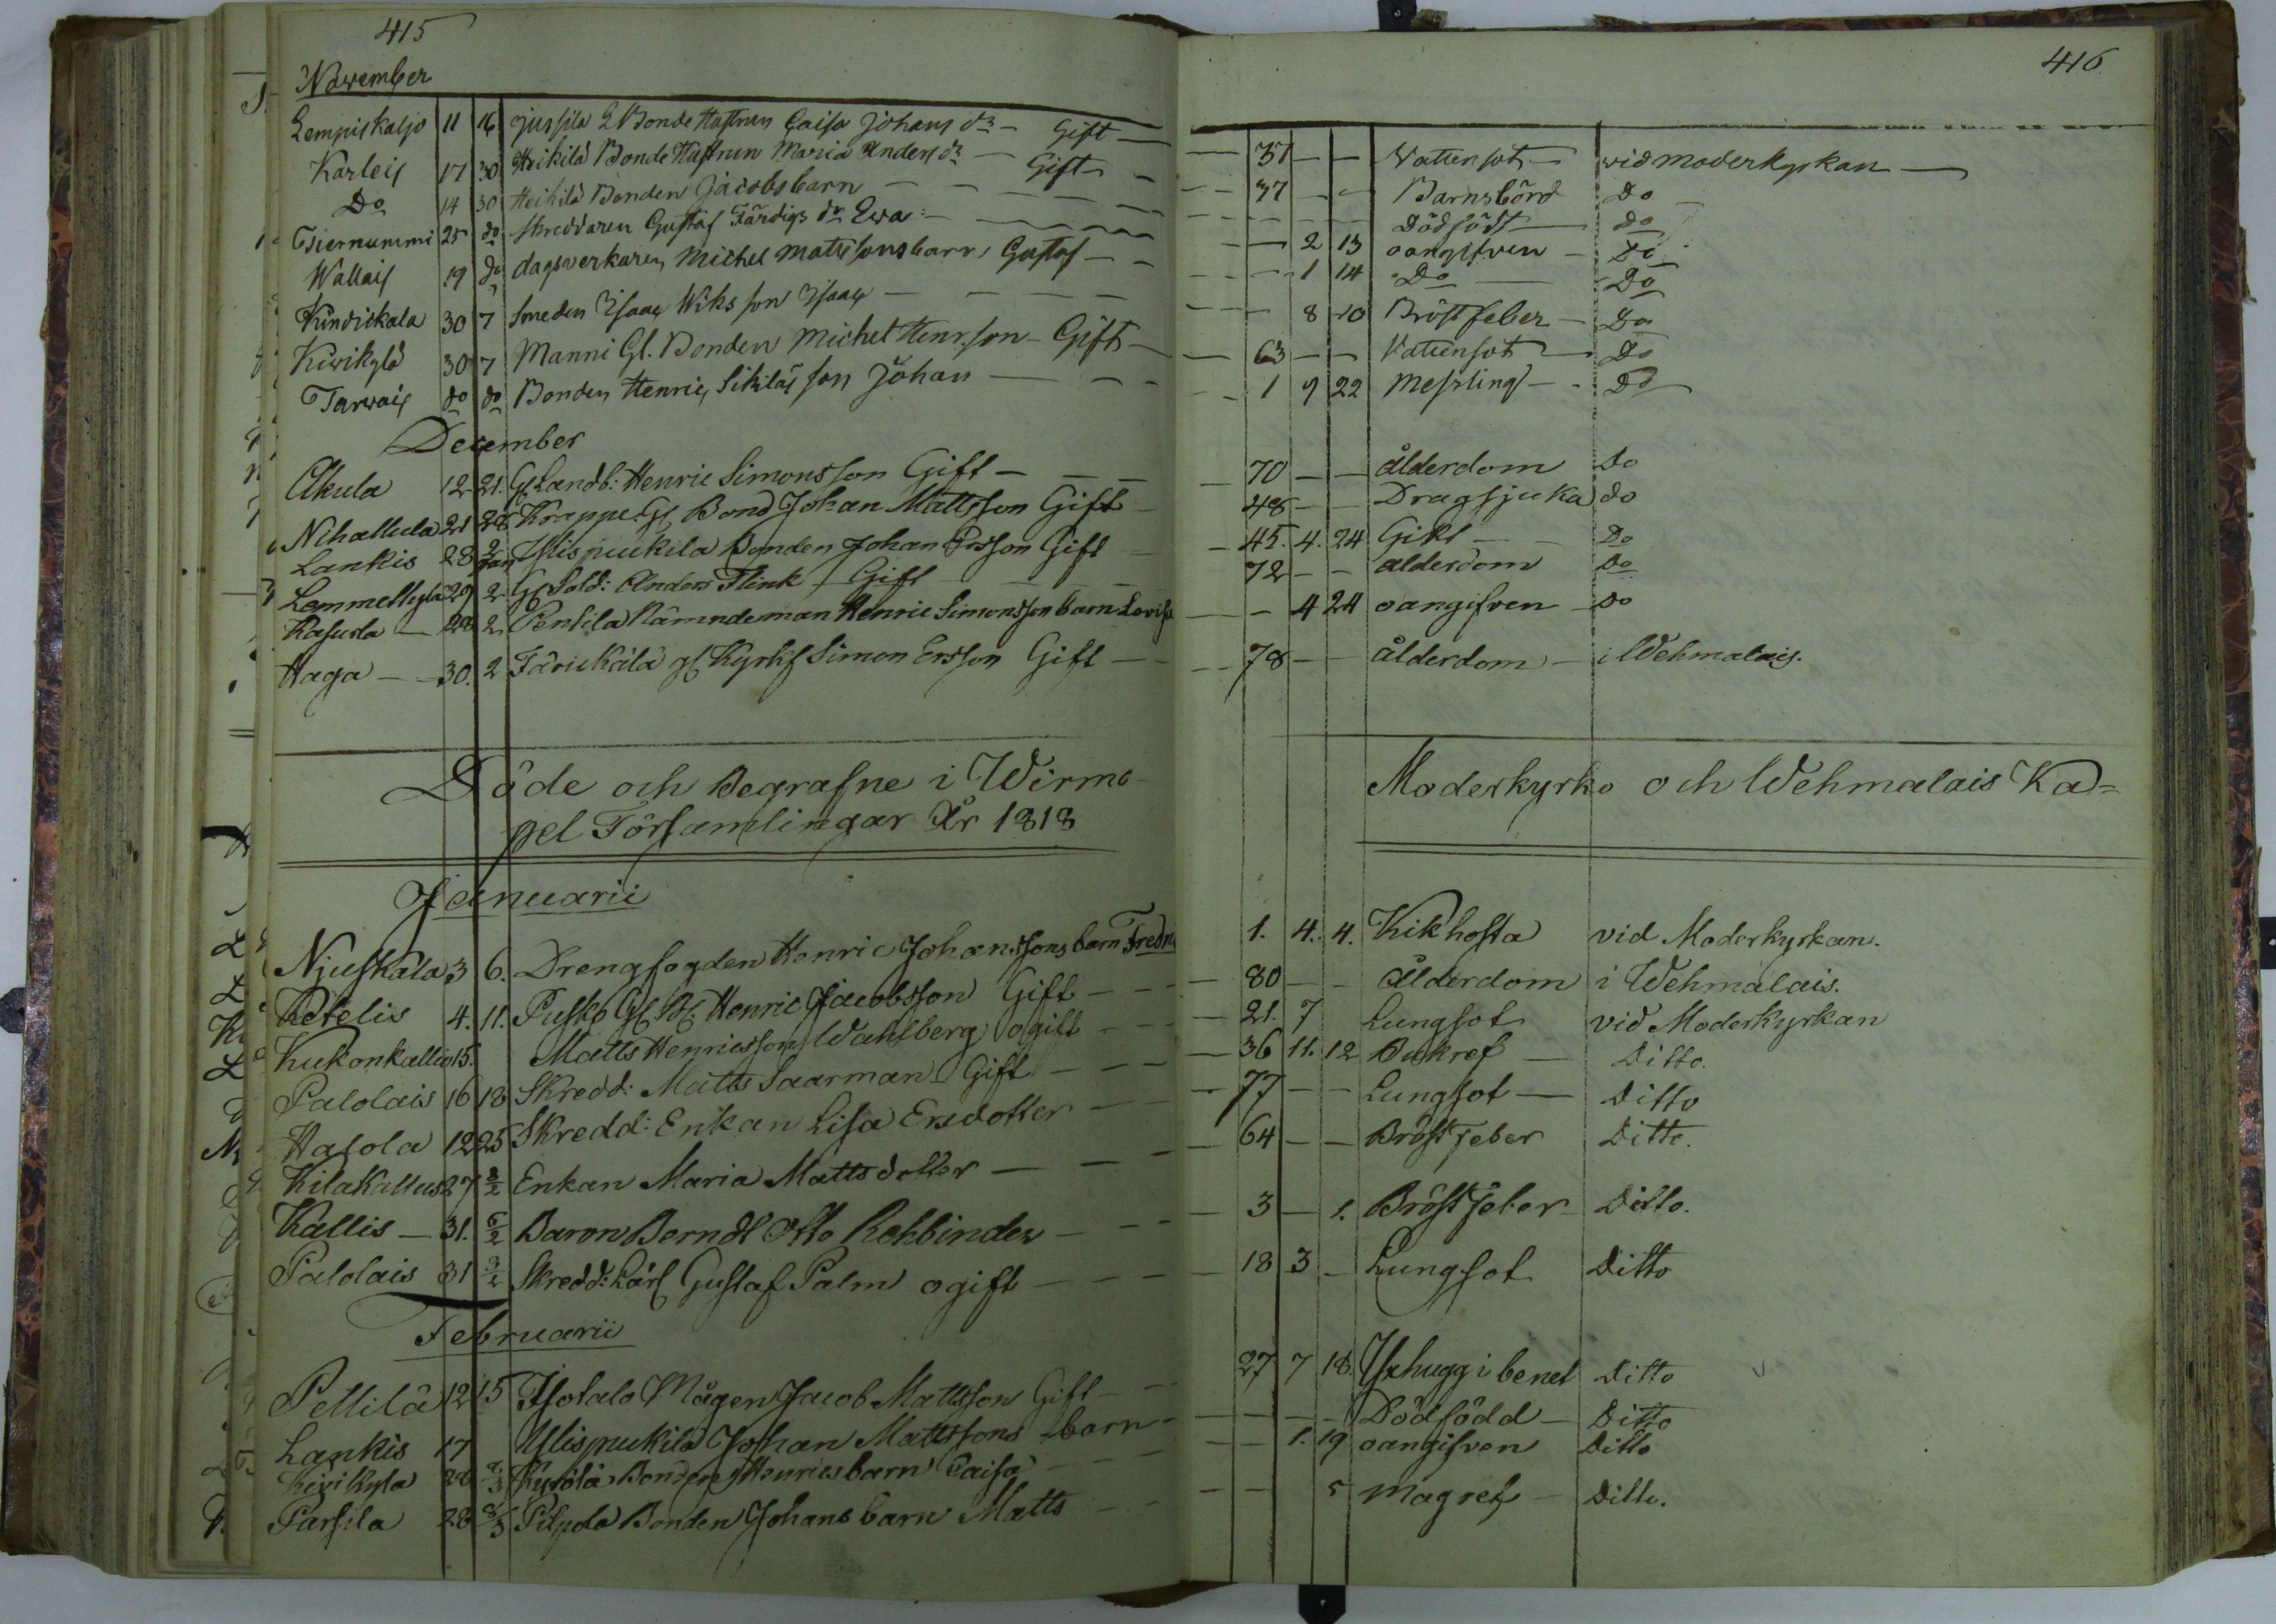 415
November
Lempiskaljo 11 16 Jussila Bonde Hustrun Caisa Johans dr Gift
Karleis 17 30 Heikilä Bonde Hustrun Maria Anders dr Gift
Do 14 30 Heikilä Bonden Jacobs barn
Tiernummi 25 do Skreddaren Gustaf Färdigs dr Ewa
Wallais 19 do dagsverkaren Michel Mattssons barn Gustaf
Kindiskala 30 7 Smeden Isaac Wiks son Isaac
Kiwikylä 30 7 Manni Gl. Bonden Michel Henr.son Gift
Tarwais do do Bonden Henric Sikiläs son Johan
December
Akula 12 21. Gl Landb: Henric Simonsson Gift
Nihattula 21 28 Krappe Gl Bond Johan Mattsson Gift
Lankis 28 2 Jan Ylispuukila Bonden Johan Ersson Gift
Lemmetkyla 29 2 Gl Sold: Anders Flink Gift
Kasurla 28 2 Pentila Nämndeman Henric Simonsson barn Lovisa
Haga 30. 2 gl Kyrkf Simon Ersson Gift
Döde och Begrafne i Wirmo
pel Församlingar År 1818
Januarii
Njuskala 3 6. Drengfogden Henric Johanssons barn Fredr
Ketelis 4. 11. Pusko Gl B: Henric Jacobsson Gift
Kukonkallio 15. Matts Henricsson Wahlberg ogift
Palolais 16 18 Skredd: Matts Saarman Gift
Hatola 12 25 Skredd: Enkan Lisa Ersdotter
Kilakallus 27 2/2 Enkan Maria Mattsdotter
Kallis 31. 5/2 Baron Berndt Otto Rehbinder
Palolais 31 3/2 Skredd: Lärl Gustaf Palm ogift
Februarii
Pettilä 12 15 Isotalo Mågen Jacob Mattsson Gift
Lankis 17 Ylispuukilä Johan Mattssons barn
Kivikyla 20 Kyrölä Bonden Henrics barn Caisa
Parsila 28 8/3 Pilpola Bonden Johans barn Matts
416
37 Vattensot vid moderkyrkan
37 Barnsbörd Do
Dödfödt do
2 13 oangifven Do
1 14 Do Do
8 10 Bröstfeber Do
63 Vattensot Do
1 9 22 Messling Do
70 ålderdom Do
48 Dragsjuka do
45. 4. 24 Gikt Do
72 alderdom Do
4 24 oangifven Do
78 ålderdom i Wehmalais.
Moderkyrko och Wehmalais Ka=
1. 4. 4. Kikhosta vid Moderkyrkan.
80 Ålderdom i Wehmalais.
21. 7 Lungsot vid Moderkyrkan
36 11. 12 Bukref Ditto.
77 Lungsot Ditto
64 Bröstfeber Ditto.
3 1. Bröstfeber Ditto.
18 3 Lungsot Ditto
27 7 18. Yxhugg i benet Ditto
Dödfödd Ditto
1. 19 oangifven Ditto
5 magref Ditto.